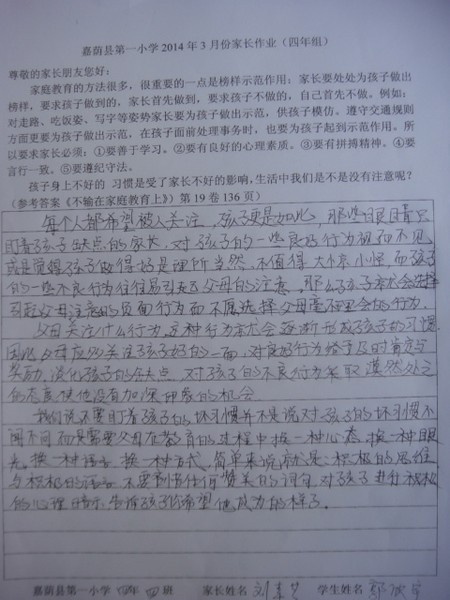 嘉荫县第一小学2014年3月份家长作业（四年组）
尊敬的家长朋友您好：
家庭教育的方法很多，很重要的一点是榜样示范作用：家长要处处为孩子做出
榜样，要求孩子做到的，家长首先做到，要求孩子不做的，自己首先不做。例如：
对走路、吃饭姿、写字等姿势家长要为孩子做出示范，供孩子模仿。遵守交通规则
方面更要为孩子做出示范，在孩子面前处理事务时，也要为孩子起到示范作用。所
以要求家长必须：①要善于学习。②要有良好的心理素质。③要有拼搏精神。④要
言行一致。⑤要遵纪守法。
孩子身上不好的 习惯是受了家长不好的影响，生活中我们是不是没有注意呢？
（参考答案《不输在家庭教育上》）第19卷136页）
每个人都希望被人关注，孩子更是如此，那些眼睛只
盯着孩子缺点的家长，对孩子的一些良好行为视而不见
或是觉得孩子做得好是理所当然，不值得大惊小怪，而孩子
的一些不良行为往往易引起父母的注意，那么孩子就会选择
引起父母注意的负面行为而不愿选择父母毫不理会的行为。
父母关注什么行为，这种行为就会逐渐形成孩子的习惯，
因此父母应多关注孩子好的一面，对良好行为给予及时肯定与
奖励，淡化孩子的缺点，对孩子的不良行为采取漠然处之
的态度，使他没有加深印象的机会
我们说不要盯着孩子的坏习惯并不是说对孩子的坏习惯不
闻不问，而是需要父母在教育的过程中换一种心态，换一种眼
光，换一种语言，换一种方式，简单来说就是：积极的思维
与积极的语言，不要吝啬任何赞美的词句，对孩子进行积极
的心理暗示，告诉孩子你希望他成为的样子。
嘉荫县第一小学 四年 四 班 家长姓名 刘 学生姓名 郭